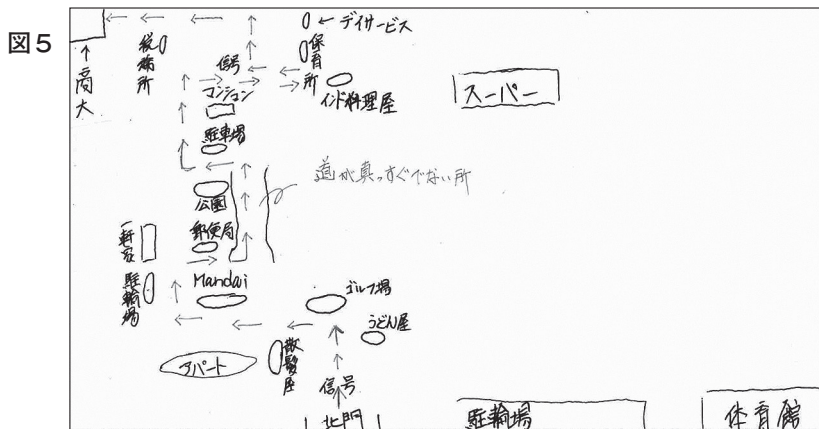 図5
← デイサービス
役務所
信号
保育所
↑
商大
マンション
インド料理屋
スーパー
駐車場
道が真っすぐでない所
公園
郵便局
一軒家
Mandai
駐輪場
ゴルフ場
うどん屋
アパート
散髪屋
信号
北門
駐輪場
体育館